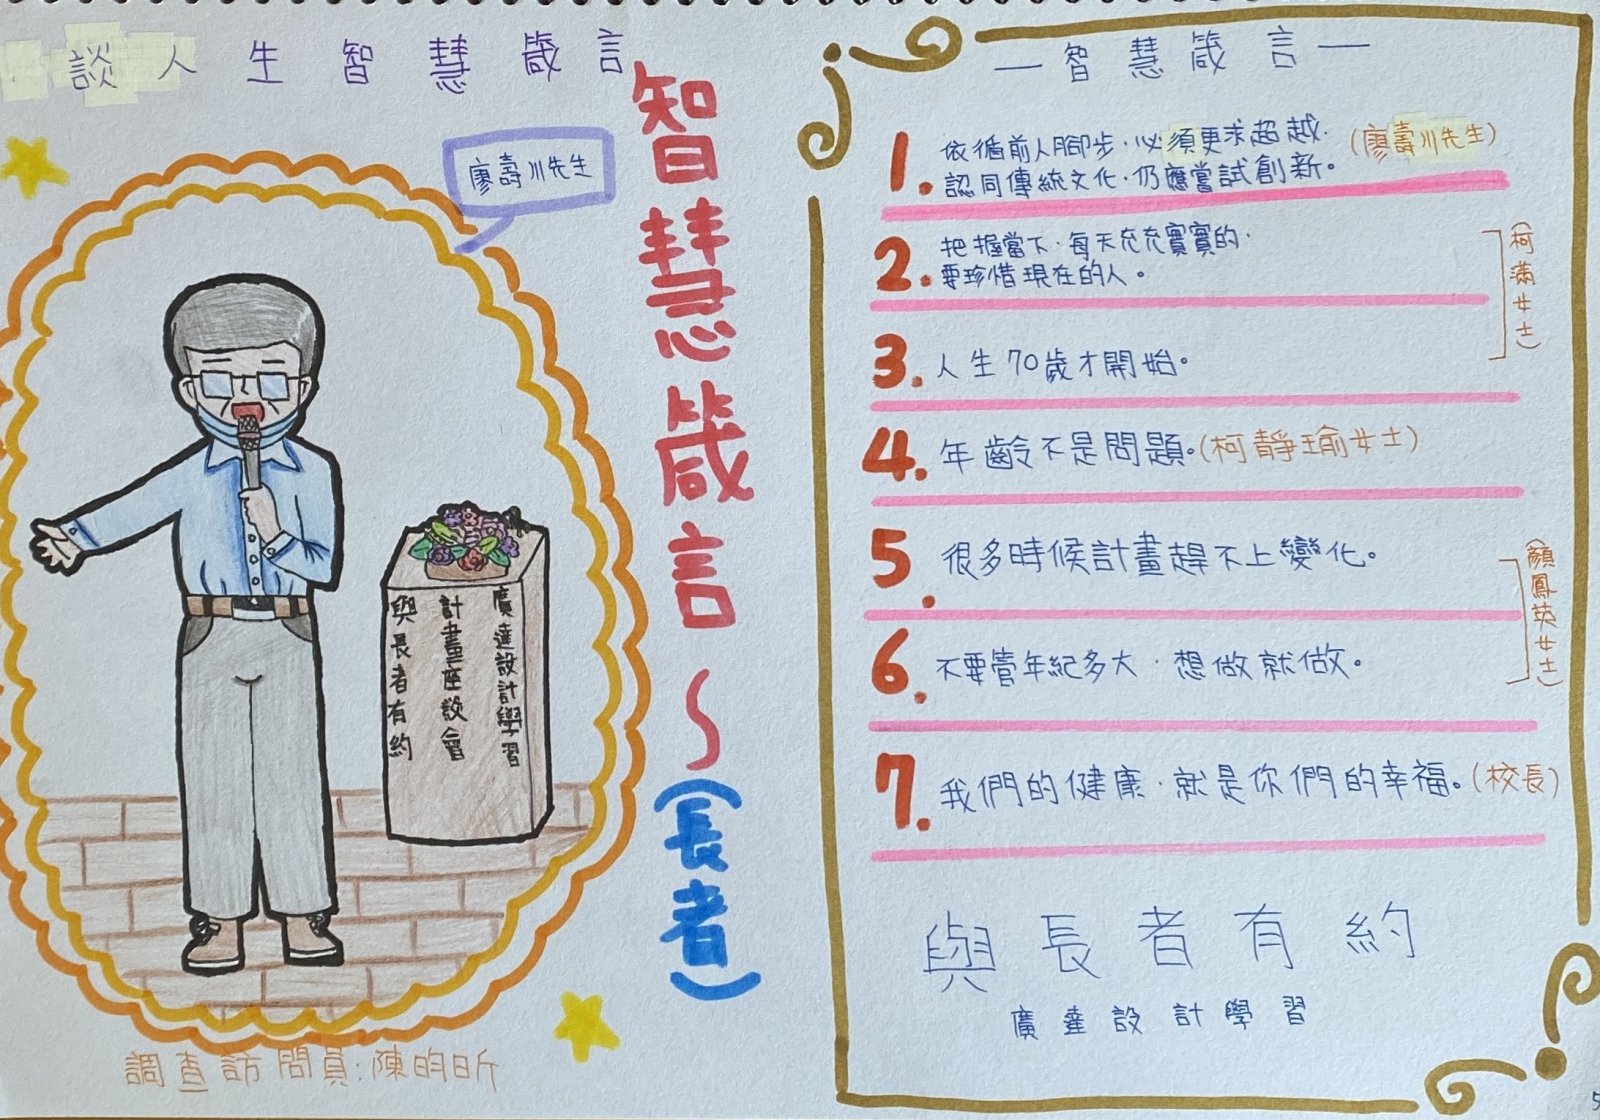 談人生智慧箴言
廖壽川先生
智慧箴言～(長者)
廣達設計學習
計畫座談會
與長者有約
調查訪問員:陳昀昕
—智慧箴言—
1.依循前人腳步,必須更求超越. (廖壽川先生)
認同傳統文化,仍應嘗試創新。
2.把握當下,每天充充實實的,
要珍惜現在的人。
(柯滿女士)
3.人生70歲才開始。
4.年齡不是問題。(柯靜瑜女士)
5.很多時候計畫趕不上變化。
(顏鳳英女士)
6.不要管年紀多大,想做就做。
7.我們的健康,就是你們的幸福。(校長)
與長者有約
廣達設計學習
5